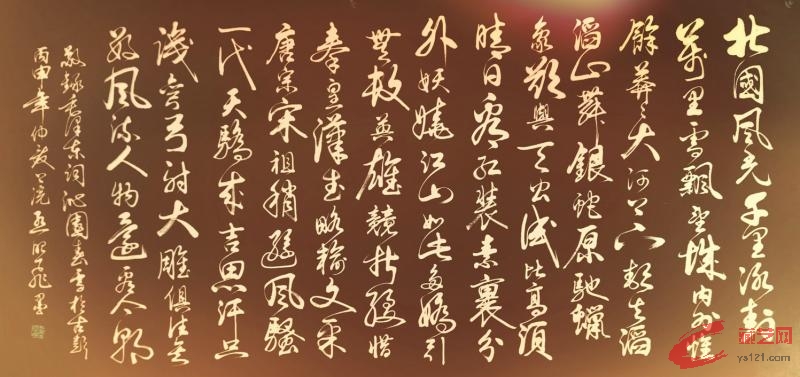 北國風光千里冰封
萬里雪飄望城内外惟
餘莽々大河上下頓失滔
滔山舞銀蛇原馳蠟
象欲與天公試比高須
晴日看紅裝素裹分
外妖嬈江山如此多嬌引
無數英雄競折腰惜
秦皇漢武略輸文采
唐宗宋祖稍遜風騷
一代天驕成吉思汗只
識彎弓射大雕俱往矣
數風流人物還看今朝
敬錄毛澤東詞沁園春雪於古彭
丙申年仲
演艺网
ys121.com